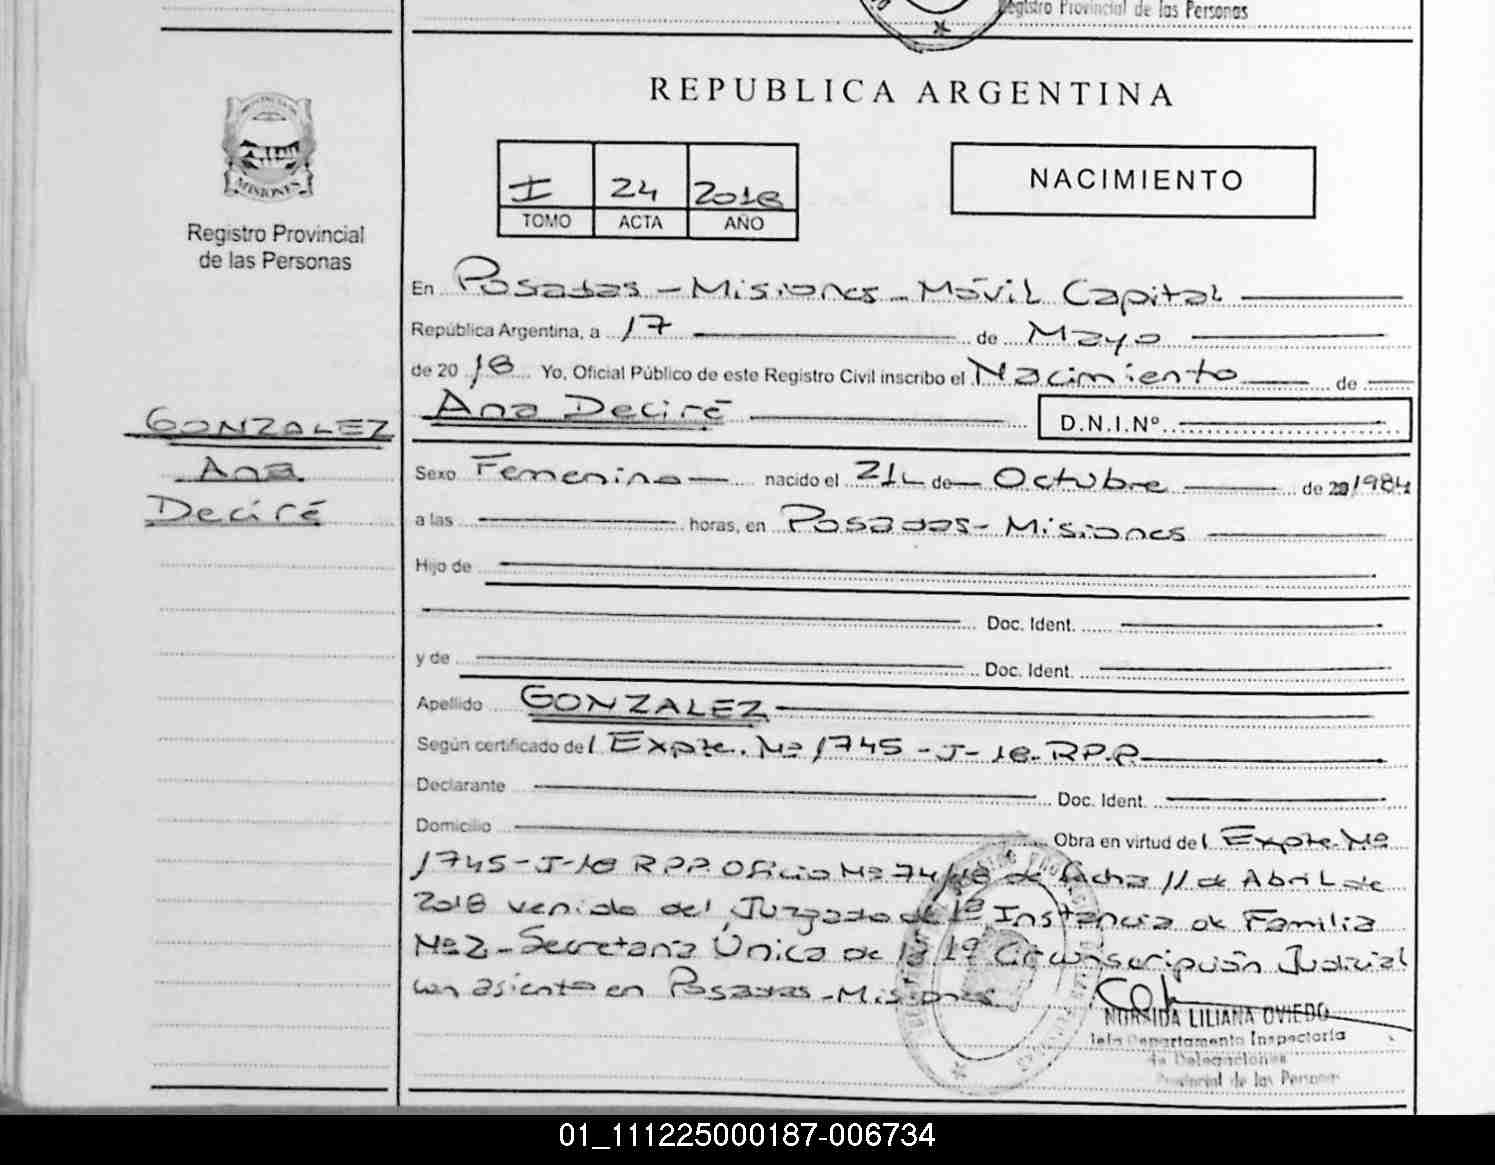 Registro Provincial de las Personas
REPUBLICA ARGENTINA
I 24 2018
TOMO ACTA AÑO
NACIMIENTO
MISIONES
Registro Provincial
de las Personas
En Posadas - Misiones - Móvil Capital
República Argentina, a 17 de Mayo
de 20 18 Yo, Oficial Público de este Registro Civil inscribo el Nacimiento de
Ana Deciré D.N.I.Nº
GONZALEZ
Ana
Deciré
Sexo Femenino nacido el 24 de Octubre de 1984
a las horas, en Posadas - Misiones
Hijo de
Doc. Ident.
y de Doc. Ident.
Apellido GONZALEZ
Según certificado del Expte. Nº 1745 - J - 18 - R.P.P.
Declarante Doc. Ident.
Domicilio Obra en virtud del Expte. Nº
1745 - J - 18 R.P.P. Oficio Nº 74/18 de fecha 11 de Abril de
2018 venido del Juzgado de 1ª Instancia de Familia
Nº 2 - Secretaría Única de la 1ª Circunscripción Judicial
con asiento en Posadas - Misiones
NORSIDA LILIANA OVIEDO
Jefe Departamento Inspectoria
de Delegaciones
Provincial de las Personas
01_111225000187-006734